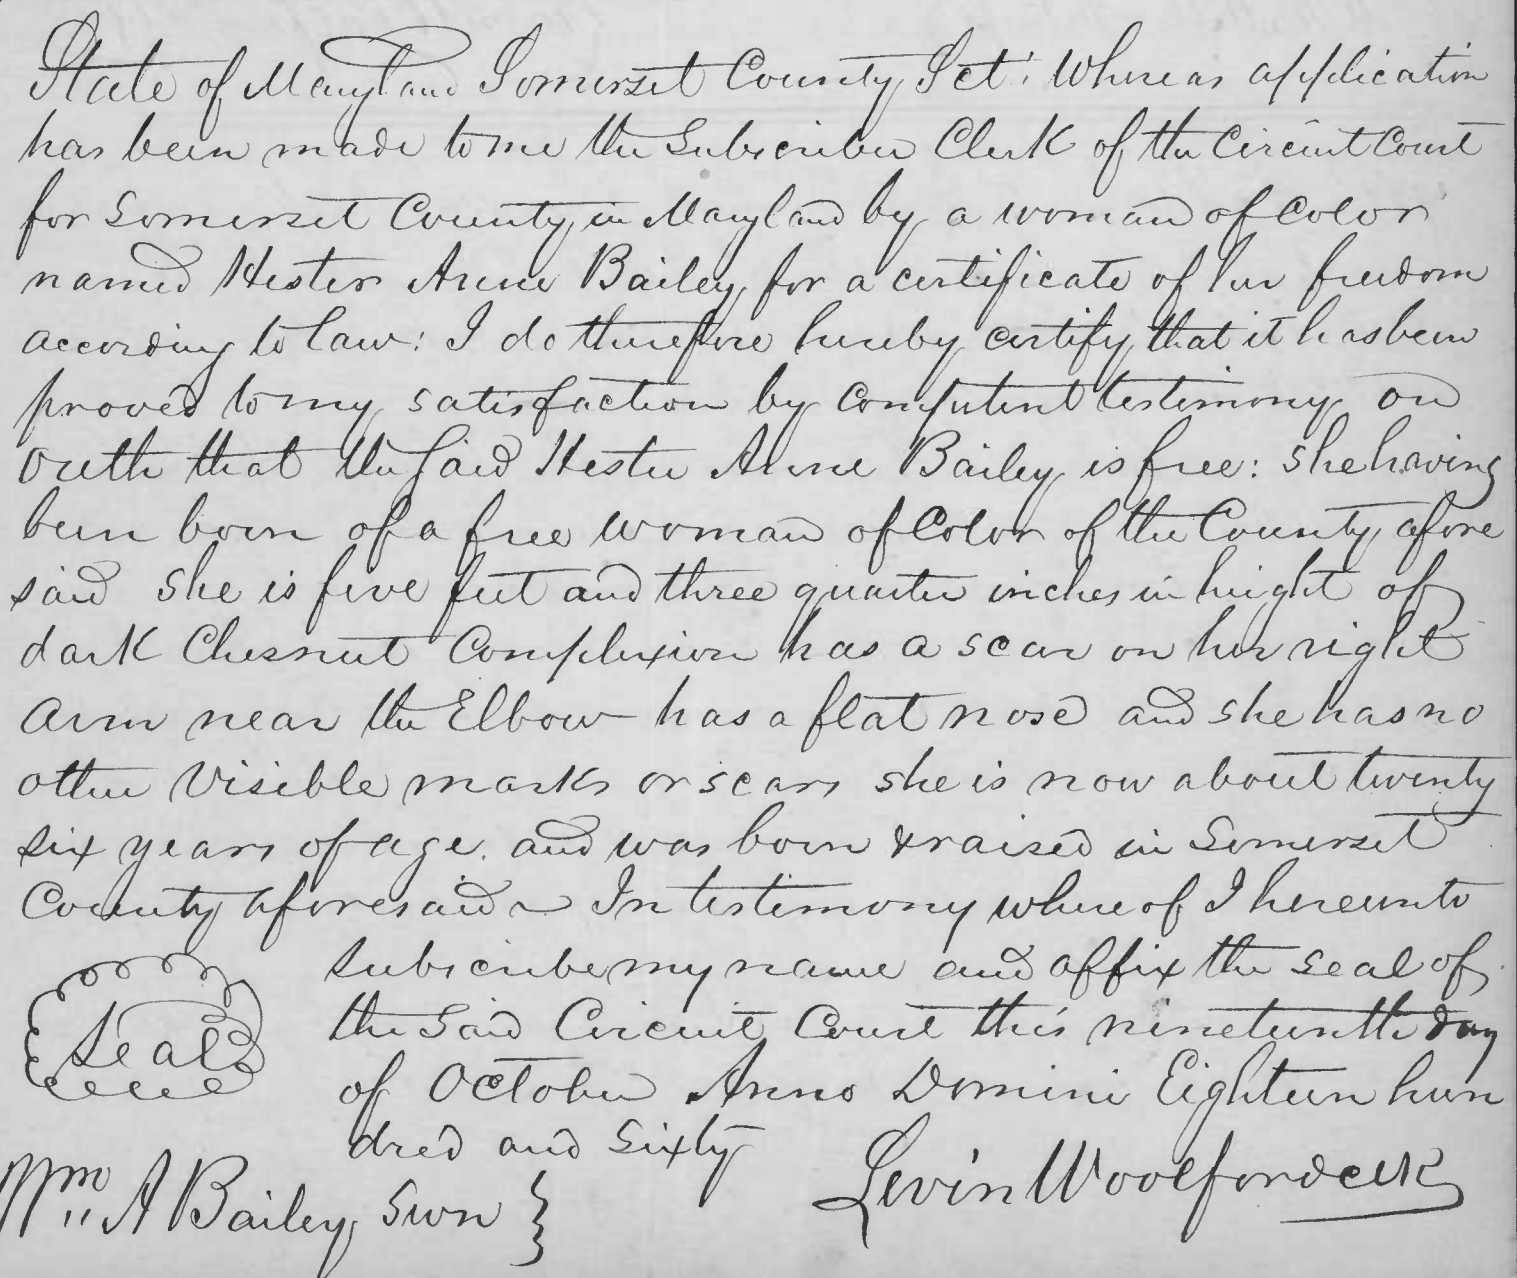 State of Maryland Somerset County Sct: Whereas application
has been made to me the Subscriber Clerk of the Circuit Court
for Somerset County in Maryland by a woman of Color
named Hester Anne Bailey for a certificate of her freedom
according to law: I do therefore hereby certify that it has been
proved to my satisfaction by competent testimony on
oath that the said Hester Anne Bailey is free: she having
been born of a free woman of Color of the County afore
said she is five feet and three quarter inches in height of
dark Chesnut Complexion has a scar on her right
arm near the Elbow has a flat nose and she has no
other Visible marks or scars she is now about twenty
six years of age. and was born & raised in Somerset
County aforesaid ~ In testimony where of I hereunto
subscribe my name and affix the seal of
the said Circuit Court this nineteenth day
of October Anno Domini Eighteen hun
dred and Sixty
Seal
Levin Woolford clk
Wm A Bailey swn }